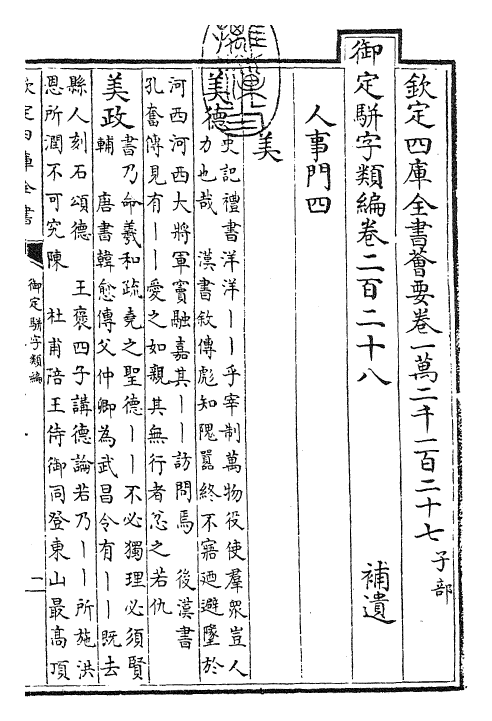 欽定四庫全書薈要卷一萬二千一百二十七 子部
御定駢字類編卷二百二十八　補遺
人事門四
美
美德 史記禮書洋洋丨丨乎宰制萬物役使羣衆豈人
力也哉　漢書敘傳彪知隗囂終不寤廼避墬於
河西河西大將軍竇融嘉其丨丨訪問焉　後漢書
孔奮傳見有丨丨愛之如親其無行者忿之若仇
美政 書乃命羲和疏堯之聖德丨丨不必獨理必須賢
輔　唐書韓愈傳父仲卿為武昌令有丨丨既去
縣人刻石頌德　王褒四子講德論若乃丨丨所施洪
恩所潤不可究陳　杜甫陪王侍御同登東山最高頂
欽定四庫全書
御定駢字類編
一